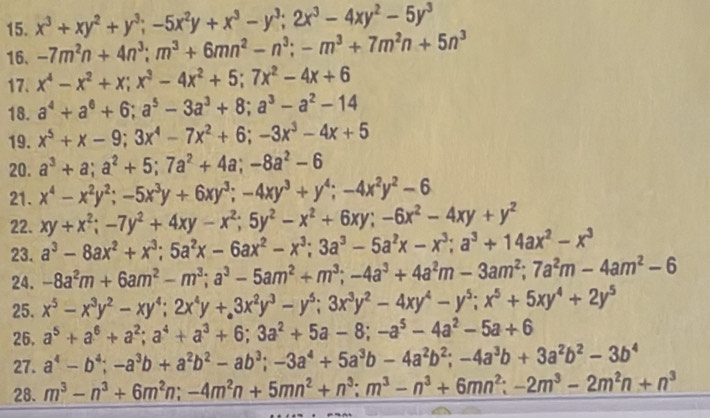 15. x³ + xy² + y³; −5x²y + x³ − y³; 2x³ − 4xy² − 5y³
16. −7m²n + 4n³; m³ + 6mn² − n³; − m³ + 7m²n + 5n³
17. x⁴ − x² + x; x³ − 4x² + 5; 7x² − 4x + 6
18. a⁴ + a⁶ + 6; a⁵ − 3a³ + 8; a³ − a² − 14
19. x⁵ + x − 9; 3x⁴ − 7x² + 6; −3x³ − 4x + 5
20. a³ + a; a² + 5; 7a² + 4a; −8a² − 6
21. x⁴ − x²y²; −5x³y + 6xy³; −4xy³ + y⁴; −4x²y² − 6
22. xy + x²; −7y² + 4xy − x²; 5y² − x² + 6xy; −6x² − 4xy + y²
23. a³ − 8ax² + x³; 5a²x − 6ax² − x³; 3a³ − 5a²x − x³; a³ + 14ax² − x³
24. −8a²m + 6am² − m³; a³ − 5am² + m³; −4a³ + 4a²m − 3am²; 7a²m − 4am² − 6
25. x⁵ − x³y² − xy⁴; 2x⁴y + 3x²y³ − y⁵; 3x³y² − 4xy⁴ − y⁵; x⁵ + 5xy⁴ + 2y⁵
26. a⁵ + a⁶ + a²; a⁴ + a³ + 6; 3a² + 5a − 8; −a⁵ − 4a² − 5a + 6
27. a⁴ − b⁴; −a³b + a²b² − ab³; −3a⁴ + 5a³b − 4a²b²; −4a³b + 3a²b² − 3b⁴
28. m³ − n³ + 6m²n; −4m²n + 5mn² + n³; m³ − n³ + 6mn²; −2m³ − 2m²n + n³